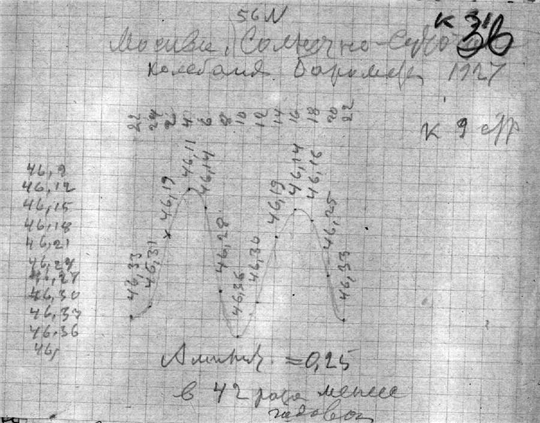 56N
к 3в
Москва, Солнечно-Суточ
колебания Барометр 1927
22 24 2 4 6 8 10 12 14 16 18 20 22
к 9 стр
46,33 46,31 46,19 46,11 46,14 46,28 46,36 46,30 46,19 46,14 46,16 46,25 46,33
46,9
46,12
46,15
46,18
46,21
46,24
46,27
46,30
46,33
46,36
46,
Амплит. = 0,25
в 42 раза менее
годовой